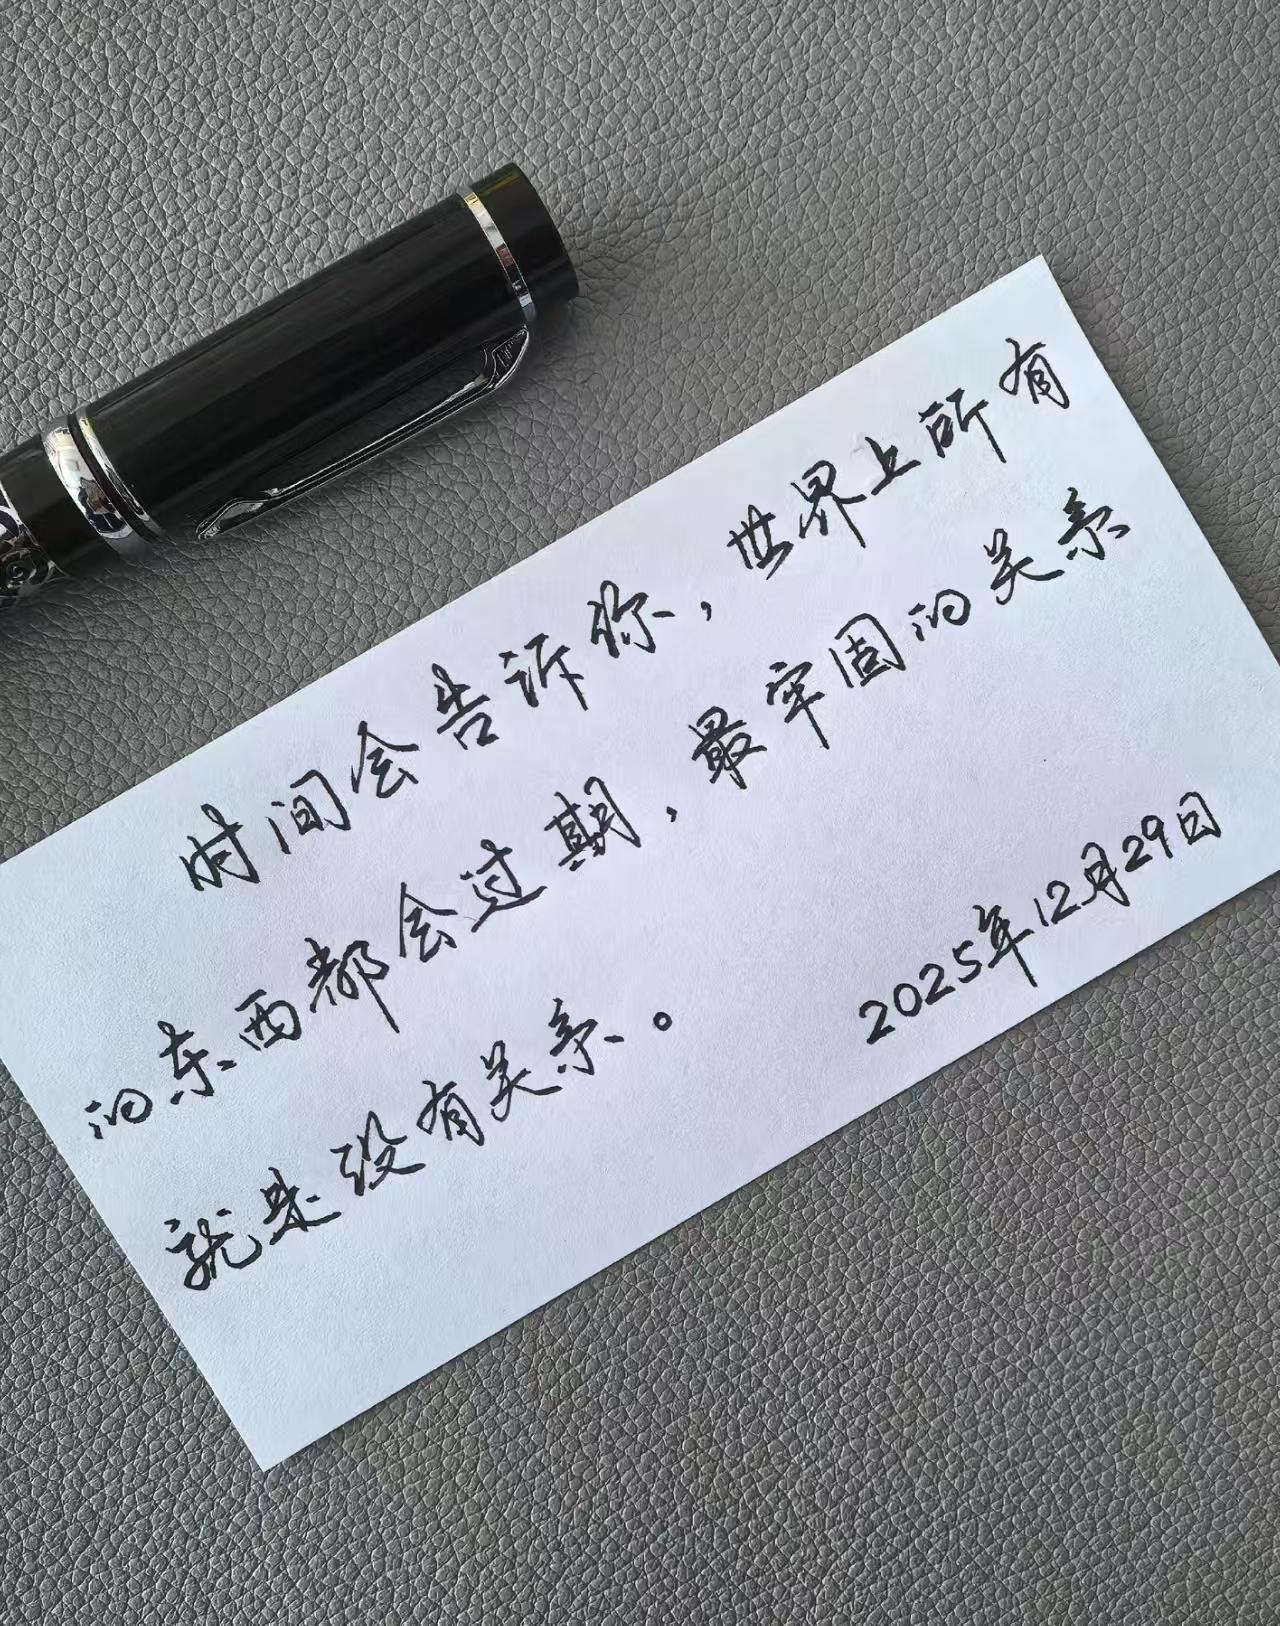 时间会告诉你，世界上所有
的东西都会过期，最牢固的关系
就是没有关系。
2025年12月29日